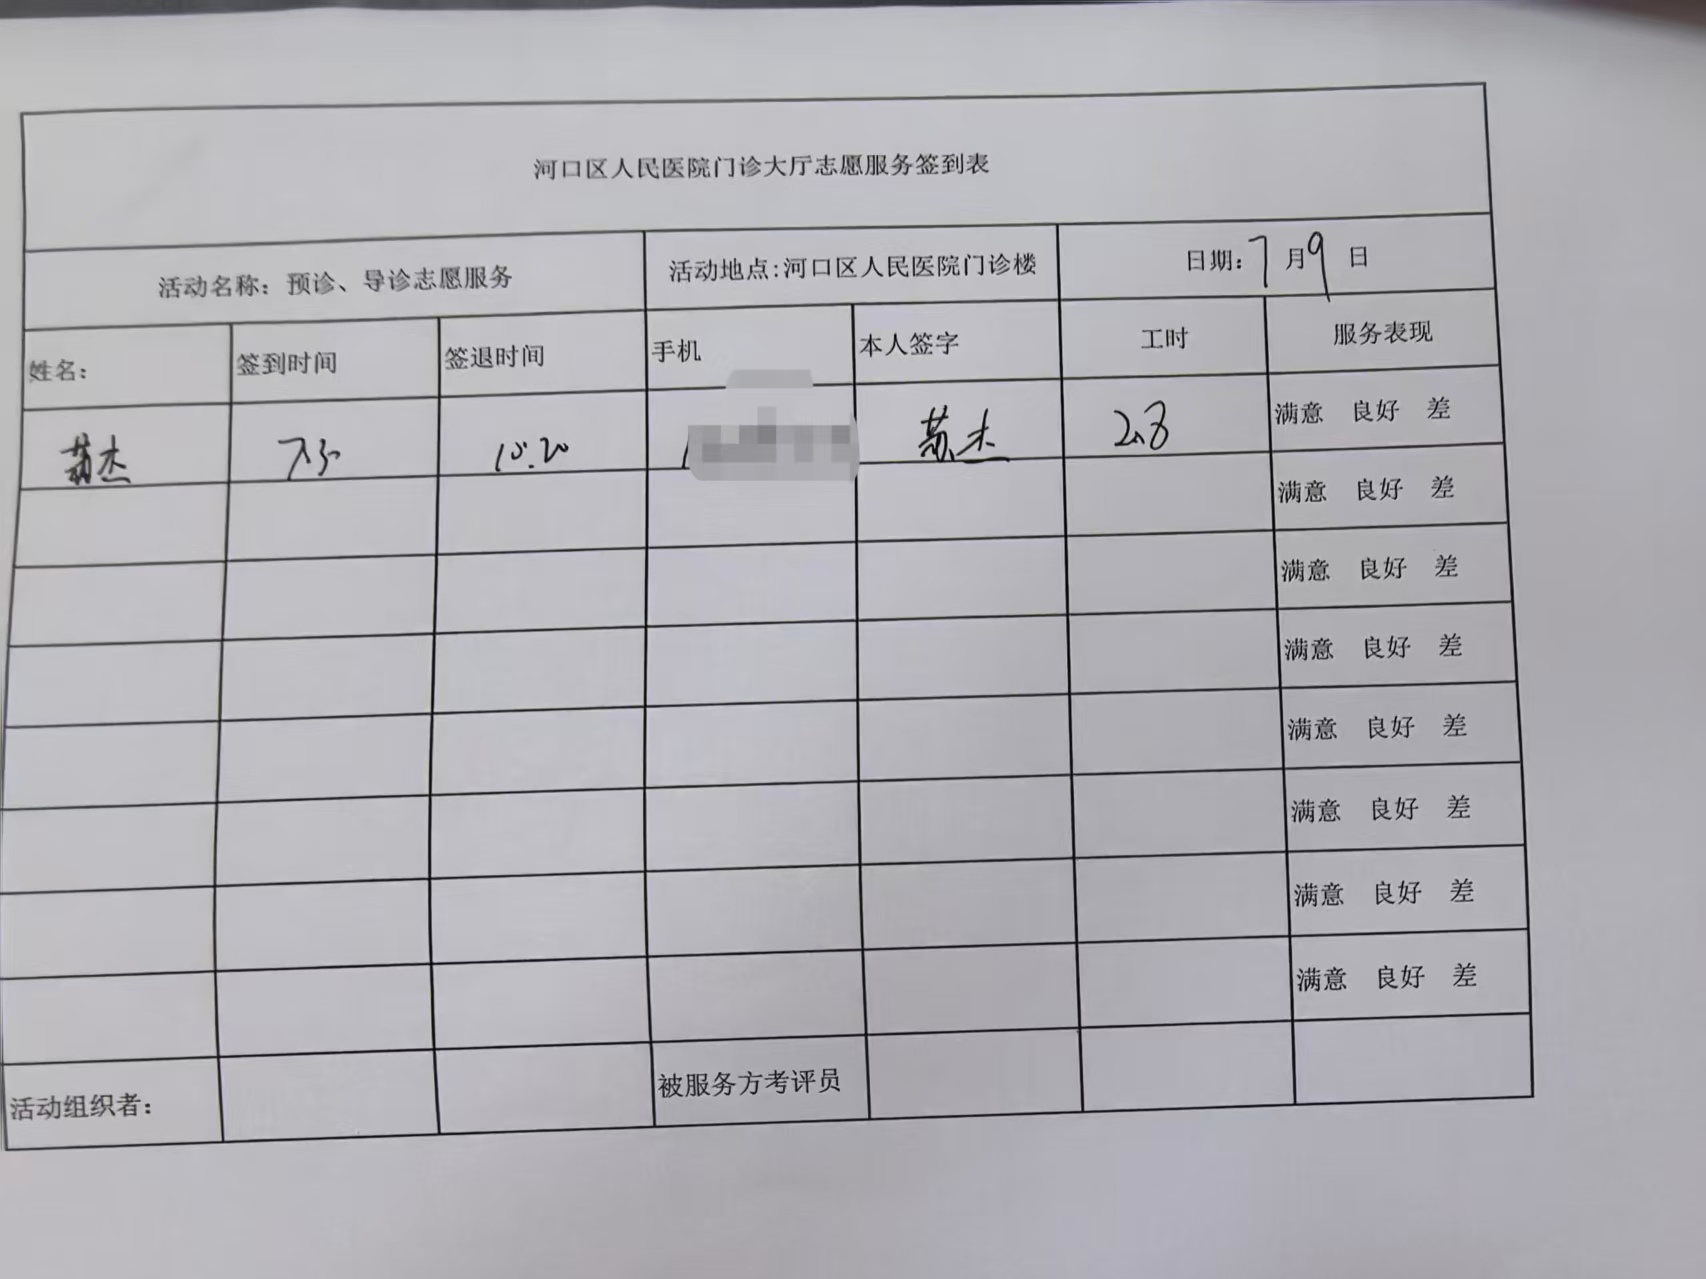 河口区人民医院门诊大厅志愿服务签到表
活动名称：预诊、导诊志愿服务 活动地点：河口区人民医院门诊楼 日期：7月9日
姓名： 签到时间 签退时间 手机 本人签字 工时 服务表现
苏杰 7:30 10:20 苏杰 2.8 满意 良好 差
满意 良好 差
满意 良好 差
满意 良好 差
满意 良好 差
满意 良好 差
满意 良好 差
满意 良好 差
活动组织者： 被服务方考评员